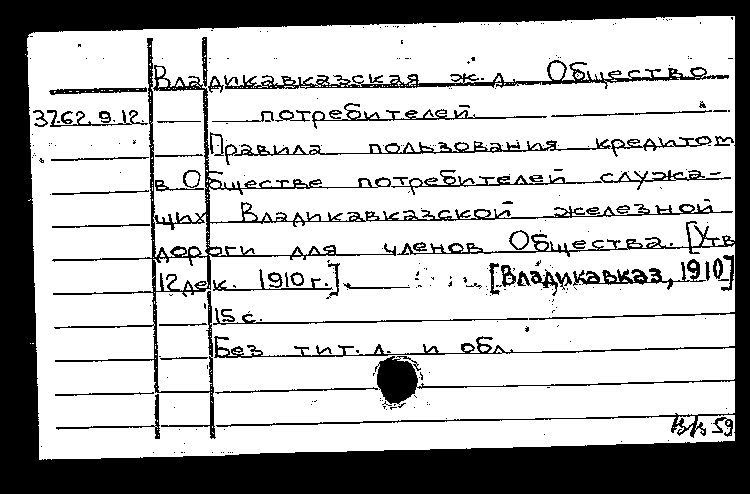 Владикавказская ж.д. Общество
37.62.9.12. потребителей.
Правила пользования кредитом
в Обществе потребителей служа-
щих Владикавказской железной
дороги для членов Общества. [Утв
12 дек. 1910 г.]. [Владикавказ, 1910]
15 с.
Без тит. л. и обл.
59